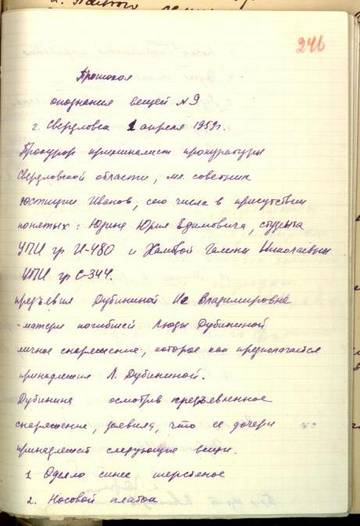 246
Протокол
опознания вещей №9
г. Свердловск 1 апреля 1959г.
Прокурор криминалист прокуратуры
Свердловской области, мл. советник
юстиции Иванов, сего числа в присутствии
понятых: Юрия Едимовича, студента
УПИ гр И-480 и Галины Николаевны
УПИ гр С-344.
предъявил Дубининой Владимировне
матери погибшей Люды Дубининой
личное снаряжение, которое как предполагается
принадлежит Л. Дубининой.
Дубинина осмотрев предъявленное
снаряжение, заявила, что ее дочери
принадлежит следующие вещи.
1. Одеяло синее шерстяное
2. Носовой платок